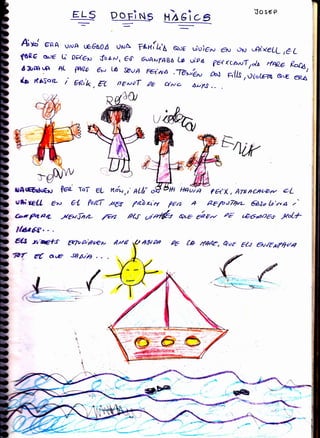 ELS DOFINS MÀGICS
JOSEP
AIXÒ ERA UNA VEGADA UNA FAMÍLIA QUE VIVIEN EN UN VAIXELL, EL
PARE QUE LI DEIEN JOAN, ES GUANYABA LA VIDA PEIXCANT, LA MARE ROSA,
AJUDAVA AL PARE EN LA SEVA FEINA. TENIEN DOS FILLS, VIOLETA QUE ERA
LA MAJOR I ERIK, EL MENUT DE CINC ANYS...
ROSA
Violeta
ERIK
JOAN
NAVEGAVEN PER TOT EL MÓN, I ALLÀ ON HI HAVIA PEIX, ATRACAVEN EL
VAIXELL EN EL PORT MES PRÒXIM PER A REPOSTAR GASOLINA I
COMPRAR MENJAR PER ALS VIATGES QUE EREN DE VEGADES MOLT
LLARGS...
ELS XIQUETS ESTUDIAVEN AMB L'AJUDA DE LA MARE, QUE ELS ENSENYAVA
TOT EL QUE SABIA...